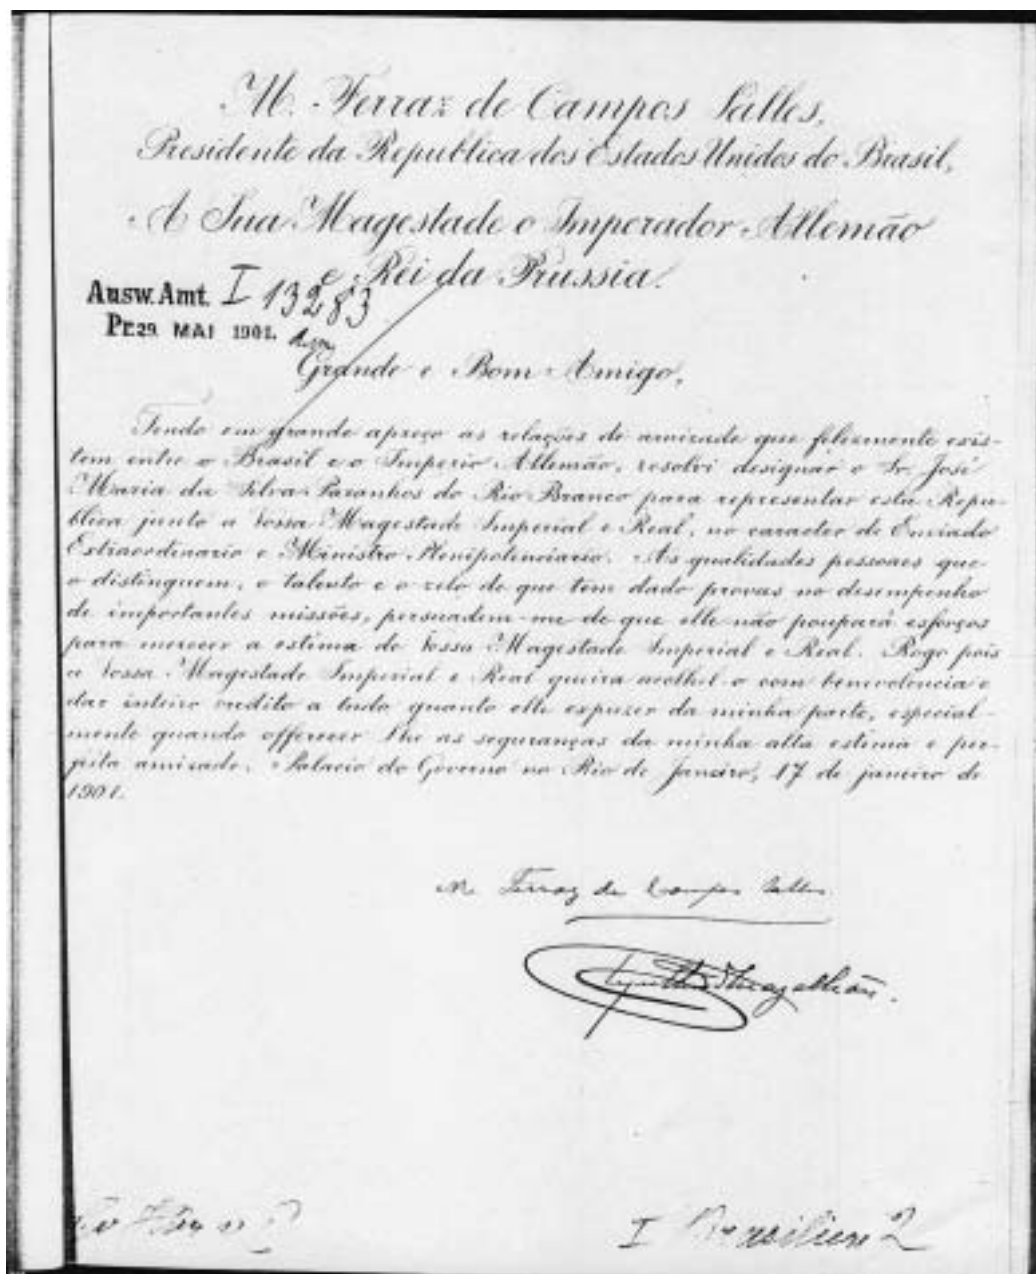 M. Ferraz de Campos Salles,
Presidente da Republica dos Estados Unidos do Brasil,
A Sua Magestade o Imperador Allemão
e Rei da Prussia.
Ausw. Amt. I 13283
PR 29. MAI 1901.
Grande e Bom Amigo,
Tendo em grande apreço as relações de amizade que felizmente exis-
tem entre o Brasil e o Imperio Allemão, resolvi designar o Sr. José
Maria da Silva Paranhos do Rio Branco para representar esta Repu-
blica junto a Vossa Magestade Imperial e Real, no caracter de Enviado
Extraordinario e Ministro Plenipotenciario. As qualidades pessoaes que
o distinguem, o talento e o zelo de que tem dado provas no desempenho
de importantes missões, persuadem-me de que elle não poupará esforços
para merecer a estima de Vossa Magestade Imperial e Real. Rogo pois
a Vossa Magestade Imperial e Real queira acolhel-o com benevolencia e
dar inteiro credito a tudo quanto elle expuzer da minha parte, especial-
mente quando offerecer lhe as seguranças da minha alta estima e per-
feita amizade. Palacio do Governo no Rio de Janeiro, 17 de janeiro de
1901.
M. Ferraz de Campos Salles
Magalhães.
I Brasilien 2